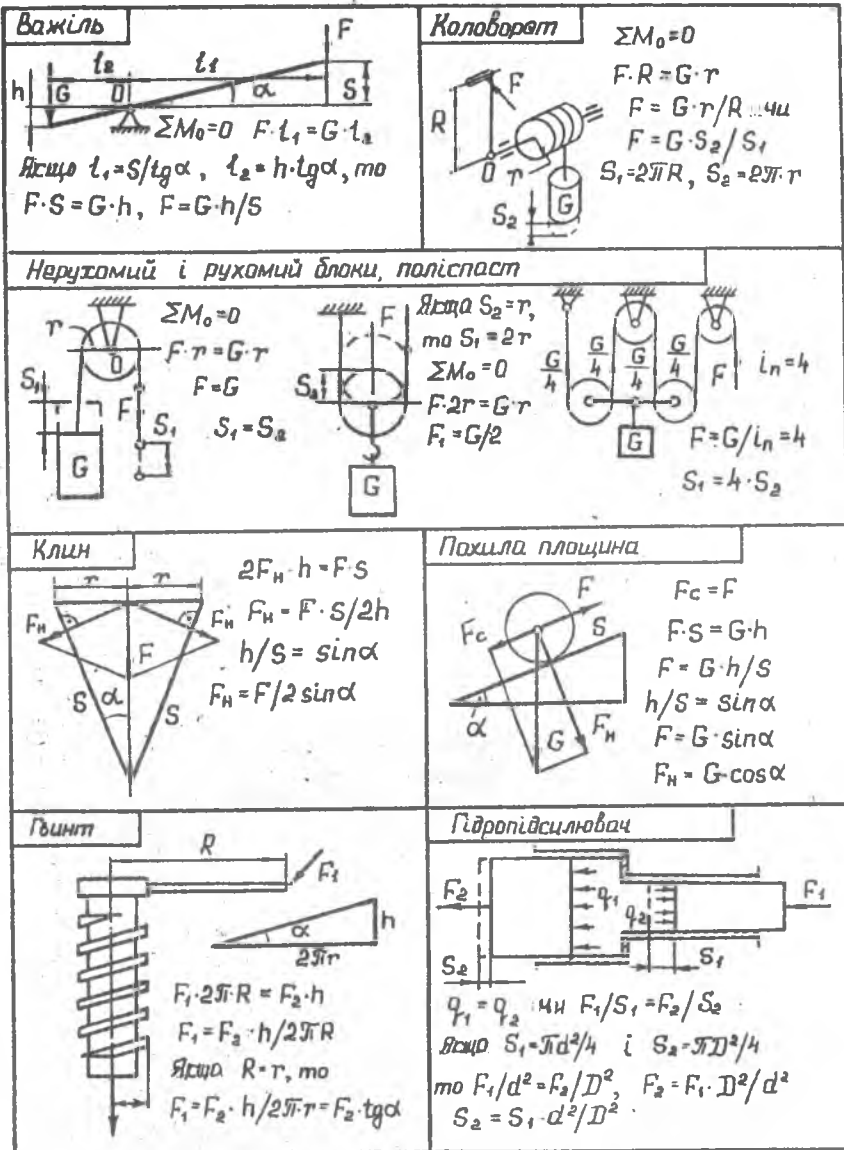 Важіль
F
l₂ l₁
h G O α S
ΣM₀=0 F·l₁=G·l₂
Якщо l₁=S/tgα, l₂=h·tgα, то
F·S=G·h, F=G·h/S
Коловорот
ΣM₀=0
F
F·R=G·r
R
F=G·r/R чи
F=G·S₂/S₁
O r
S₁=2πR, S₂=2π·r
G
S₂
Нерухомий і рухомий блоки, поліспаст
r O
ΣM₀=0
F·r=G·r
F=G
S₁=S₂
S₁ F S₁
G
F
S₂
G
Якщо S₂=r,
то S₁=2r
ΣM₀=0
F·2r=G·r
F₁=G/2
G/4 G/4 G/4 G/4 F iₙ=4
G
F=G/iₙ=4
S₁=4·S₂
Клин
r r
Fн Fн
F
S α S
2Fн·h=F·S
Fн=F·S/2h
h/S=sinα
Fн=F/2sinα
Похила площина
F
Fс S
α G Fн
Fс=F
F·S=G·h
F=G·h/S
h/S=sinα
F=G·sinα
Fн=G·cosα
Гвинт
R
F₁
α h
2πr
F₁·2π·R=F₂·h
F₁=F₂·h/2πR
Якщо R=r, то
F₁=F₂·h/2π·r=F₂·tgα
Гідропідсилювач
F₂ q₁ q₂ F₁
S₂ S₁
q₁=q₂ чи F₁/S₁=F₂/S₂
Якщо S₁=πd²/4 і S₂=πD²/4
то F₁/d²=F₂/D², F₂=F₁·D²/d²
S₂=S₁·d²/D²